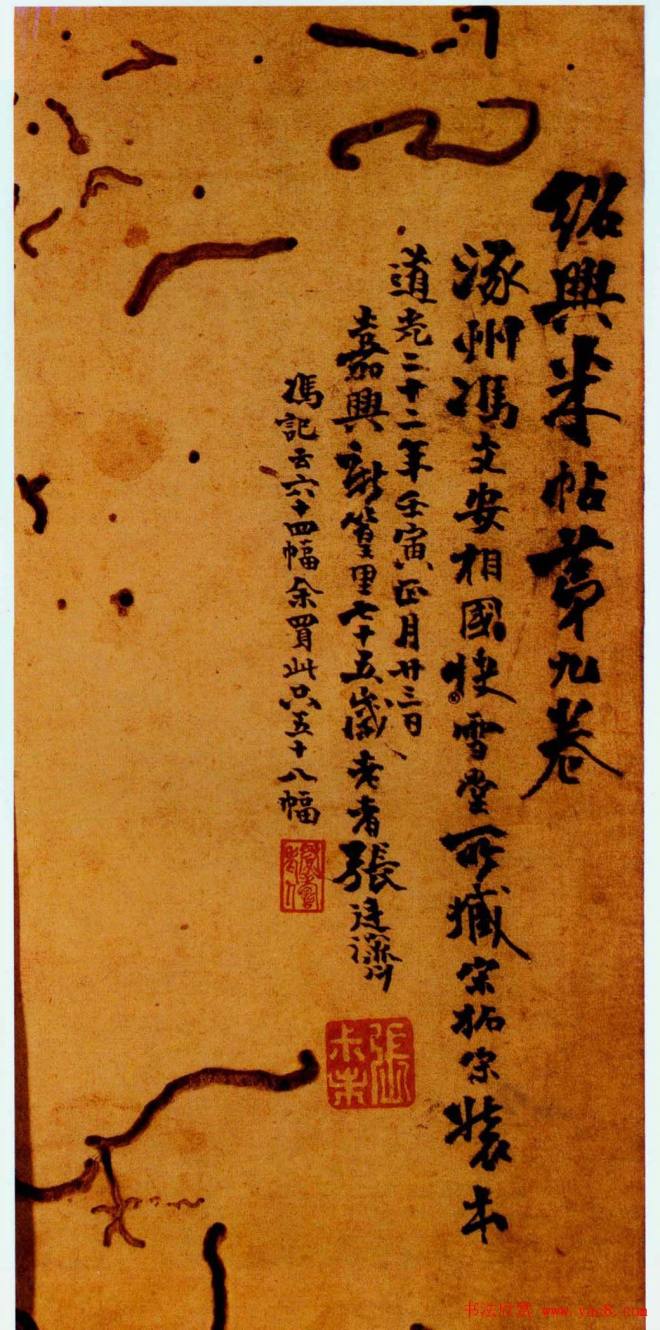 紹興米帖第九卷
涿州馮文安相國快雪堂所藏宗拓宗裝本
道光二十二年壬寅正月廿三日
嘉興新篁里七十五歲老者張廷濟
馮記云六十四幅余買此只五十八幅
張叔未
书法欣赏 www.yac8.com